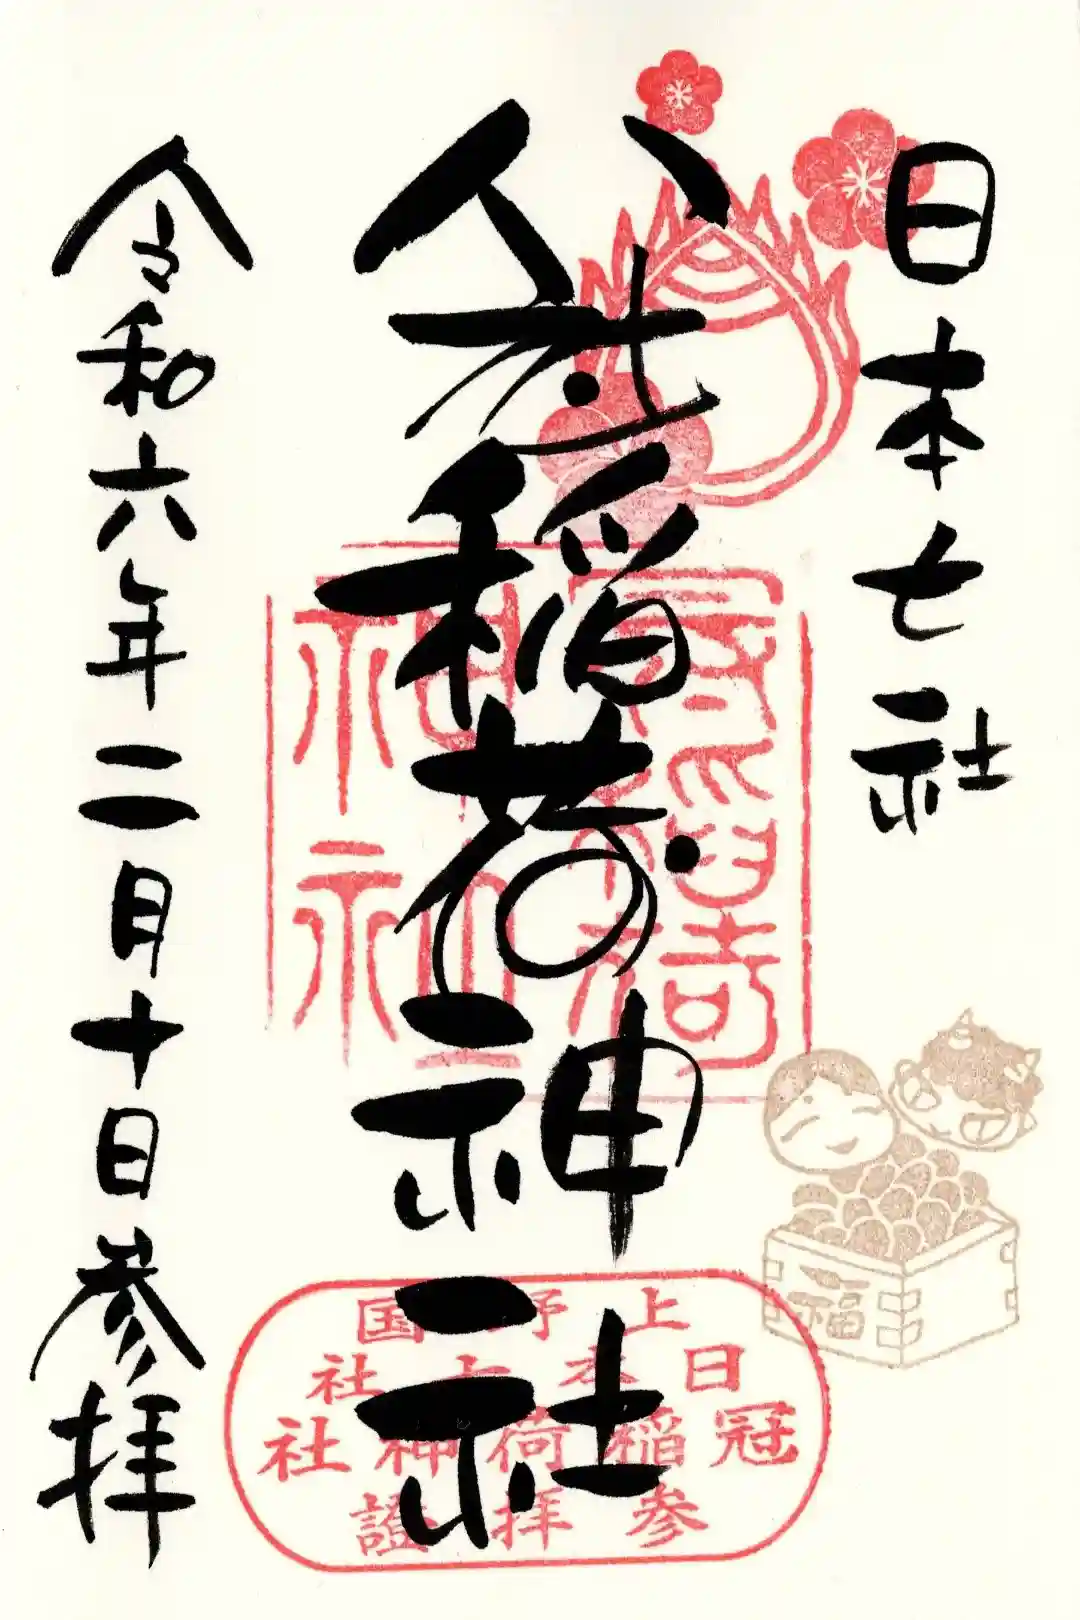 日本七社
冠稲荷神社
令和六年二月十日参拝
冠稲荷
神社
上野国
日本七社
冠稲荷神社
参拝證
福